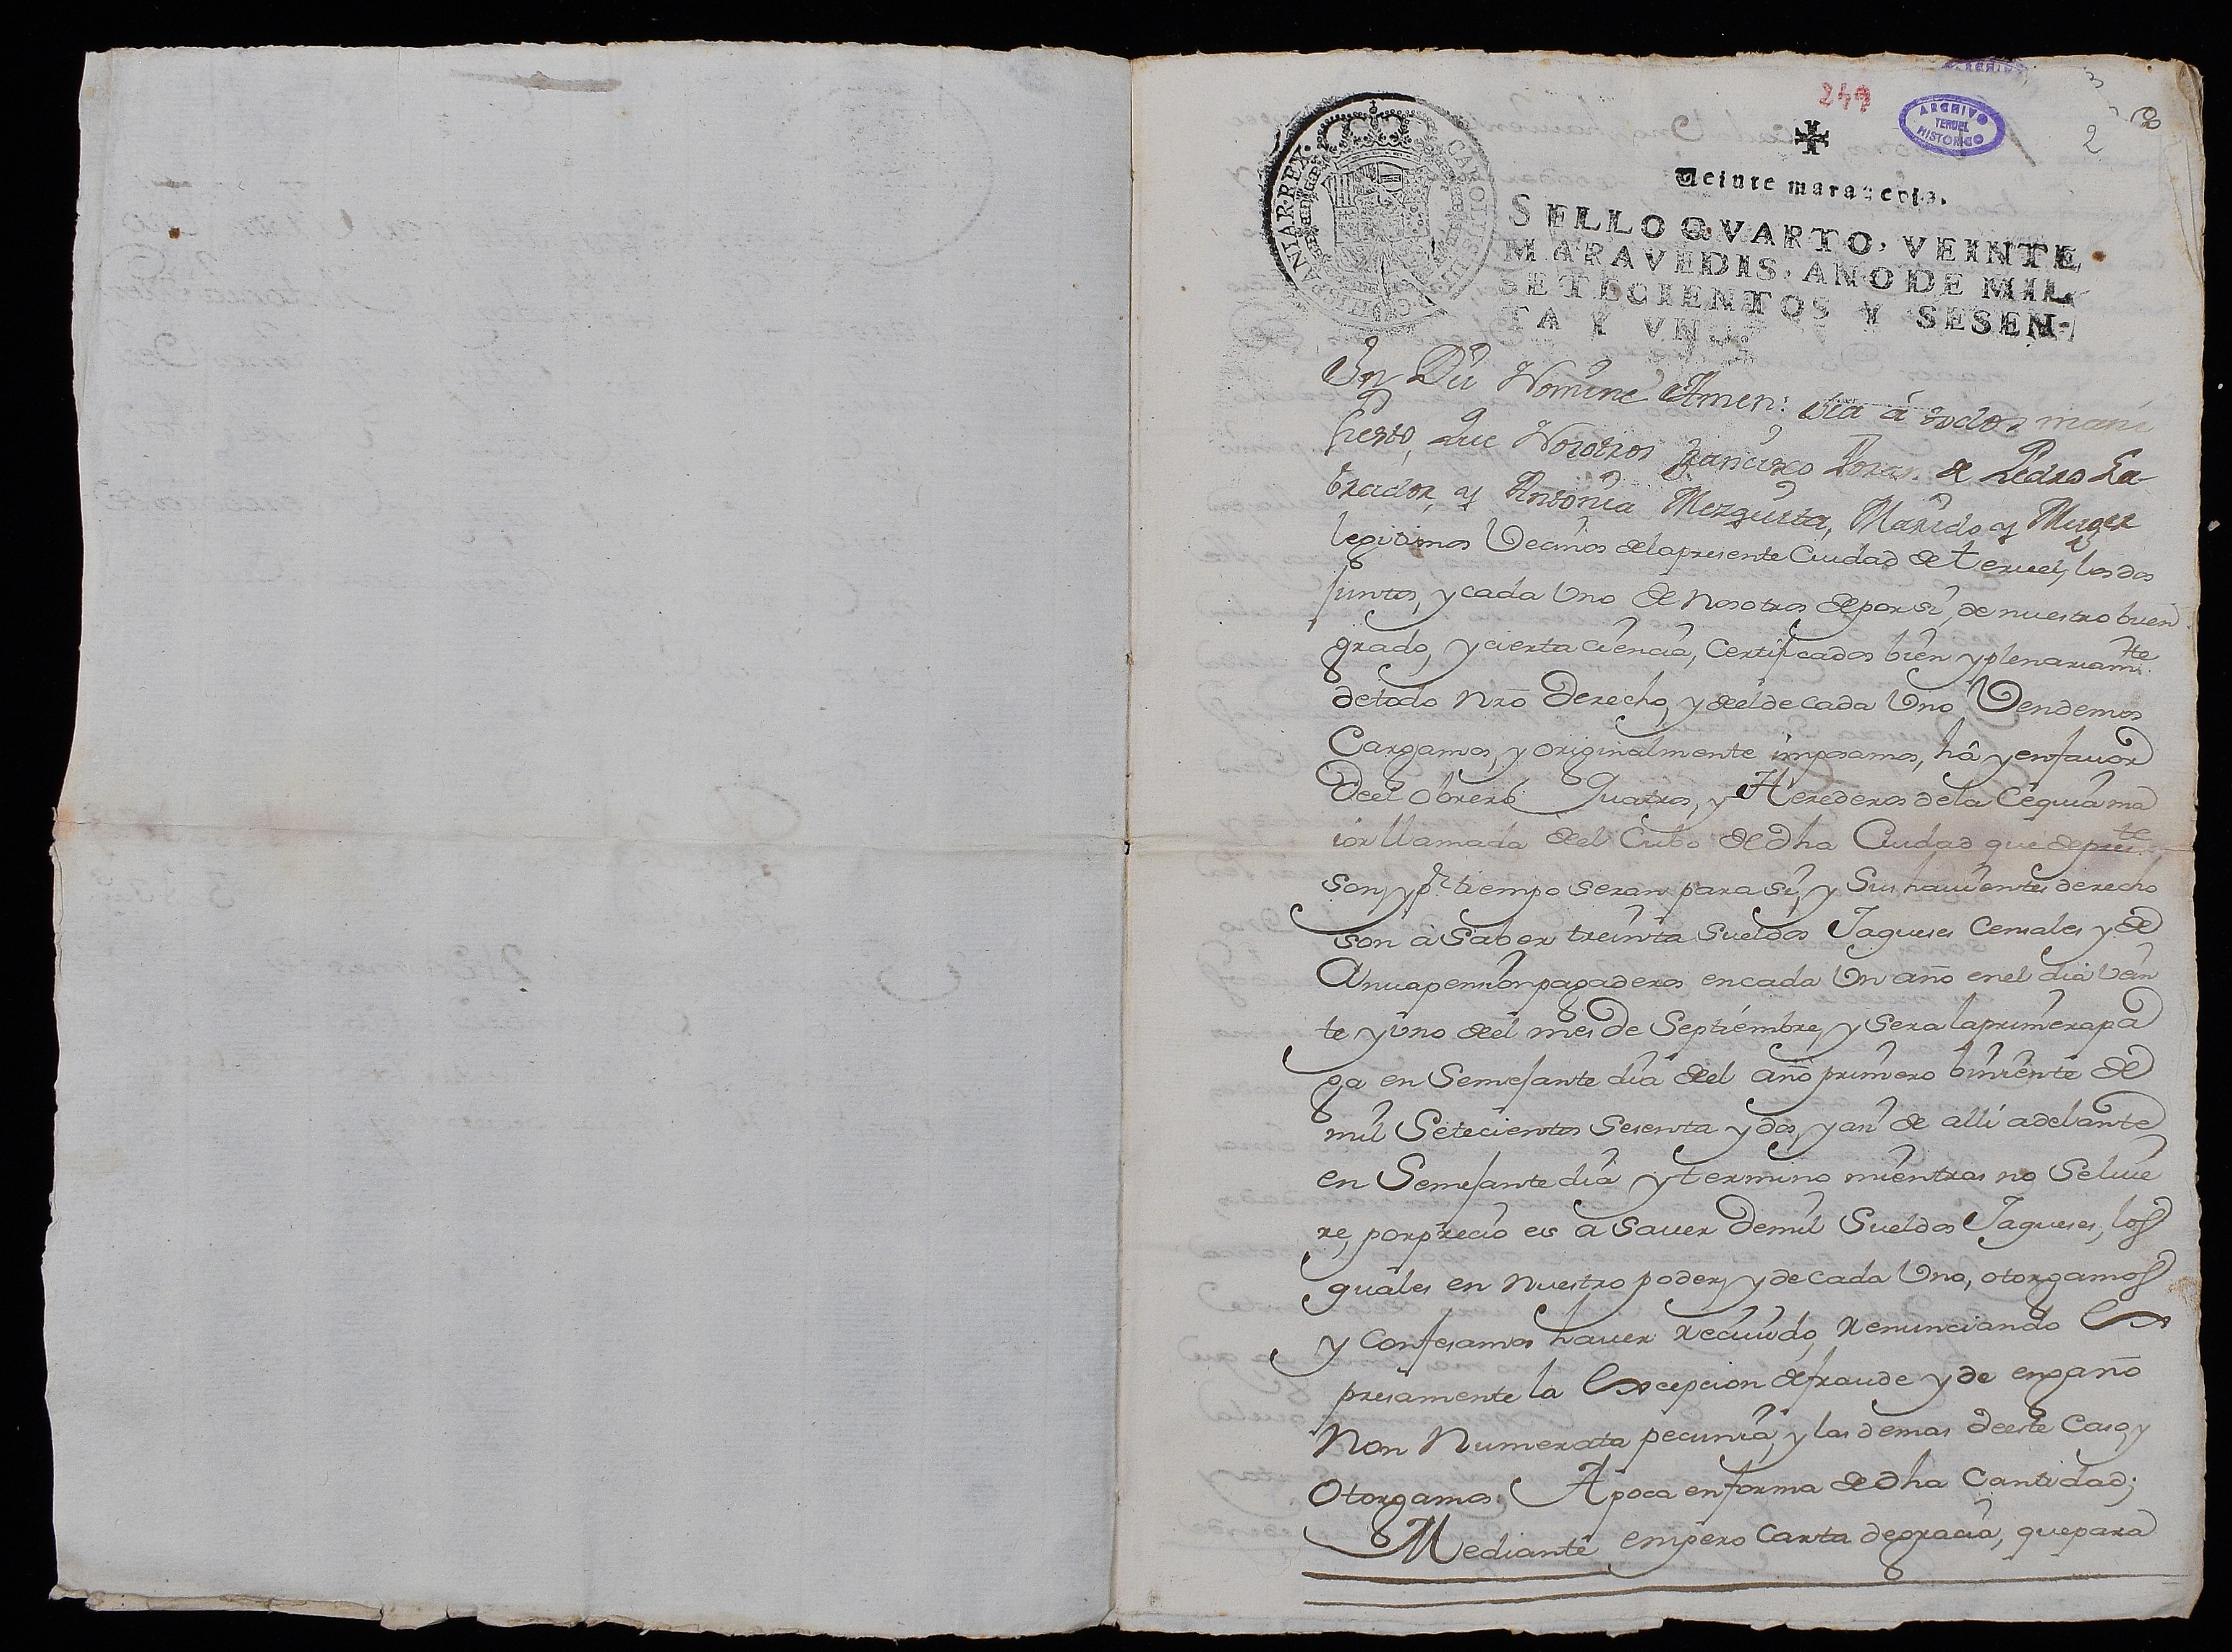 249
ARCHIVO
TERUEL
HISTORICO
3
2
Veinte maravedis.
CAROLUS III D G HISPANIAR REX
SELLO QVARTO, VEINTE
MARAVEDIS, AÑO DE MIL
SETECIENTOS Y SESEN-
TA Y VNO.
In Dei Nomine Amen: Sea á todos mani
fiesto, que Nosotros Francisco Toran de Pedro La-
brador, y Antonia Mezquita, Marido y Muger
legitimos Vecinos de la presente Ciudad de Teruel, los dos
juntos, y cada Uno de nosotros de por si, de nuestro buen
grado, y cierta ciencia, Certificados bien y plenariamte
de todo nro Derecho, y del de cada Uno Vendemos
Cargamos, y originalmente imposamos, hâ y en favor
Deel Obrero Quatros, y Herederos de la Cequia ma
ior llamada deel Cubo de dha Ciudad que de preste
son, y pr tiempo seran para si, y Sus havientes derecho
son à Saber treinta Sueldos Jaqueses Censales y de
Anua pension pagaderos en cada Un año en el dia Vein
te y uno deel mes de Septiembre, y sera la primera pa
ga en Semejante dia deel año primero biniente de
mil Setecientos Sesenta y dos, y asi de alli adelante
en Semejante dia y termino mientras no Se luie
re, por precio es a saver de mil Sueldos Jaqueses, los
quales en nuestro poder, y de cada Uno, otorgamos
y Confesamos haver recivido, renunciando Ex
presamente la Excepcion de fraude y de engaño
Non Numerata pecunia, y las demas de este Caso, y
Otorgamos Apoca en forma de dha Cantidad;
Mediante empero Carta de gracia, que para